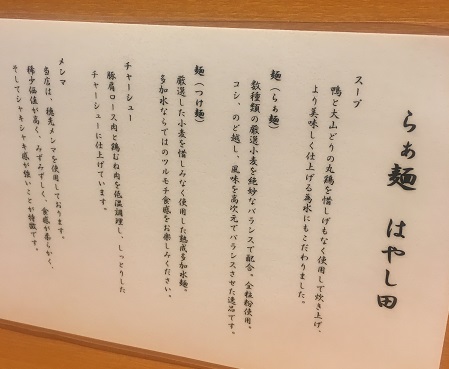 らぁ麺 はやし田
スープ
鴨と大山どりの丸鶏を惜しげもなく使用して炊き上げ、
より美味しく仕上げる為水にもこだわりました。
麺(らぁ麺)
数種類の厳選小麦を絶妙なバランスで配合。全粒粉使用。
コシ、のど越し、風味を高次元でバランスさせた逸品です。
麺(つけ麺)
厳選した小麦を惜しみなく使用した熟成多加水麺。
多加水ならではのツルモチ食感をお楽しみください。
チャーシュー
豚肩ロース肉と鶏むね肉を低温調理し、しっとりした
チャーシューに仕上げています。
メンマ
当店は、穂先メンマを使用しております。
稀少価値が高く、みずみずしく、食感が柔らかく、
そしてシャキシャキ感が強いことが特徴です。